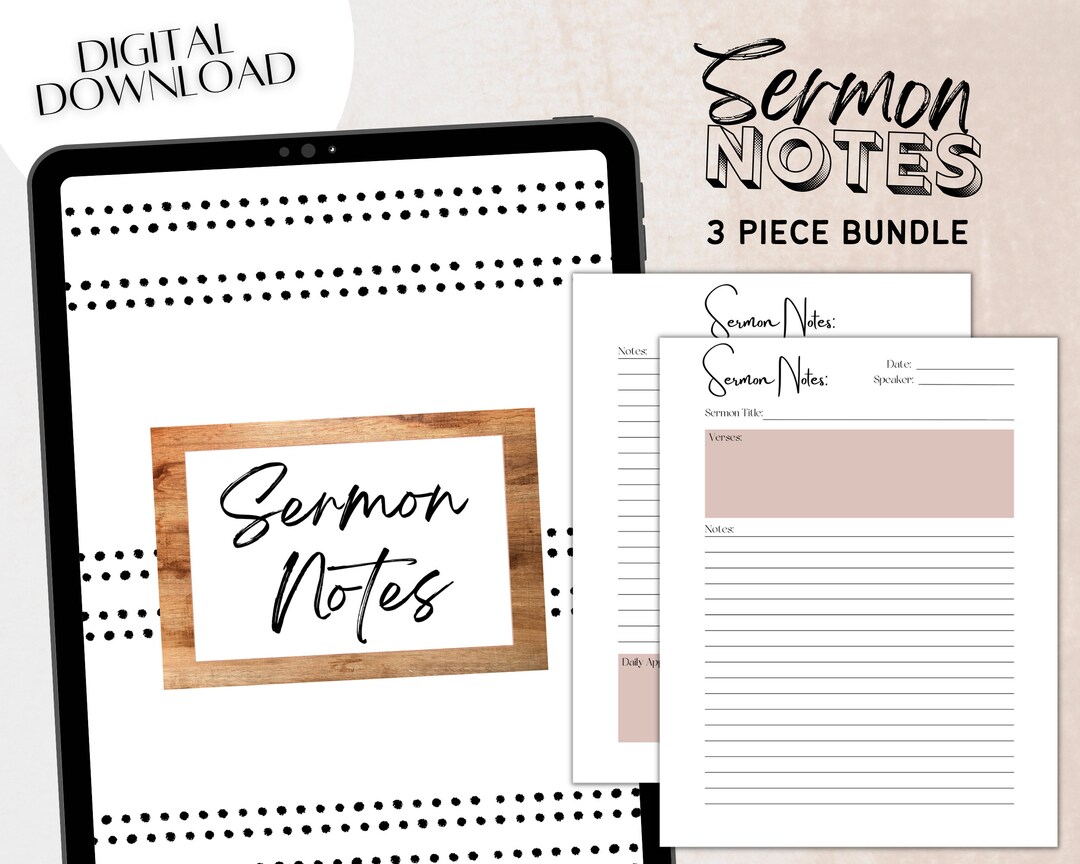 DIGITAL
DOWNLOAD
Sermon
NOTES
3 PIECE BUNDLE
Sermon
Notes
Sermon Notes:
Notes:
Daily
Sermon Notes:
Date:
Speaker:
Sermon Title:
Verses:
Notes: